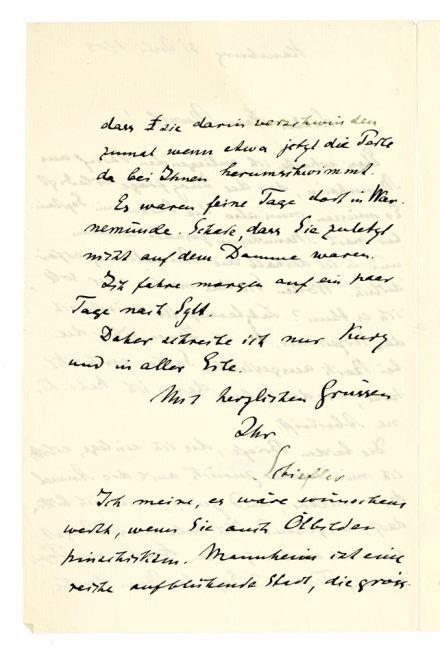 dass sie darin verschwinden
zumal wenn etwa jetzt die Paste
da bei Ihnen herumschwimmt.
Es waren feine Tage dort in War-
nemünde. Schade, dass Sie zuletzt
nicht auf dem Damme waren.
Ich fahre morgen auf ein paar
Tage nach Sylt.
Daher schreibe ich nur Kurz
und in aller Eile.
Mit herzlichen Grüssen
Ihr
Schiefler
Ich meine, es wäre wünschens
werth, wenn Sie auch Ölbilder
hinschickten. Mannheim ist eine
reiche aufblühende Stadt, die gross-